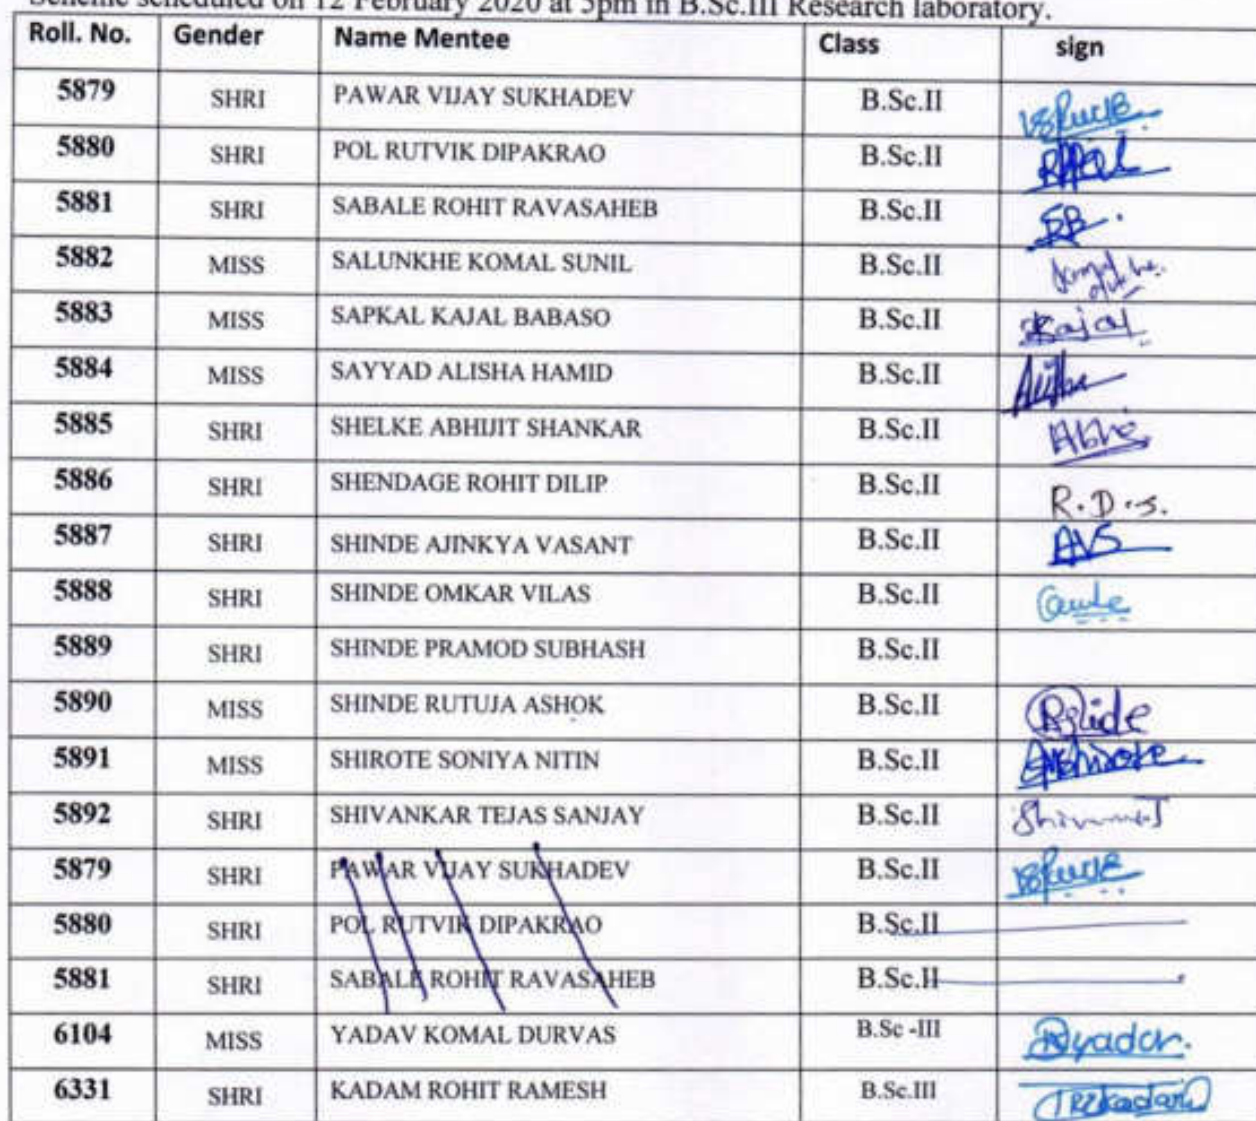 Scheme scheduled on 12 February 2020 at 5pm in B.Sc.III Research laboratory.
Roll. No. Gender Name Mentee Class sign
5879 SHRI PAWAR VIJAY SUKHADEV B.Sc.II
5880 SHRI POL RUTVIK DIPAKRAO B.Sc.II
5881 SHRI SABALE ROHIT RAVASAHEB B.Sc.II
5882 MISS SALUNKHE KOMAL SUNIL B.Sc.II
5883 MISS SAPKAL KAJAL BABASO B.Sc.II Kajal
5884 MISS SAYYAD ALISHA HAMID B.Sc.II
5885 SHRI SHELKE ABHIJIT SHANKAR B.Sc.II Abhi
5886 SHRI SHENDAGE ROHIT DILIP B.Sc.II R.D.S.
5887 SHRI SHINDE AJINKYA VASANT B.Sc.II AVS
5888 SHRI SHINDE OMKAR VILAS B.Sc.II
5889 SHRI SHINDE PRAMOD SUBHASH B.Sc.II
5890 MISS SHINDE RUTUJA ASHOK B.Sc.II
5891 MISS SHIROTE SONIYA NITIN B.Sc.II
5892 SHRI SHIVANKAR TEJAS SANJAY B.Sc.II
5879 SHRI PAWAR VIJAY SUKHADEV B.Sc.II
5880 SHRI POL RUTVIK DIPAKRAO B.Sc.II
5881 SHRI SABALE ROHIT RAVASAHEB B.Sc.II
6104 MISS YADAV KOMAL DURVAS B.Sc -III
6331 SHRI KADAM ROHIT RAMESH B.Sc.III